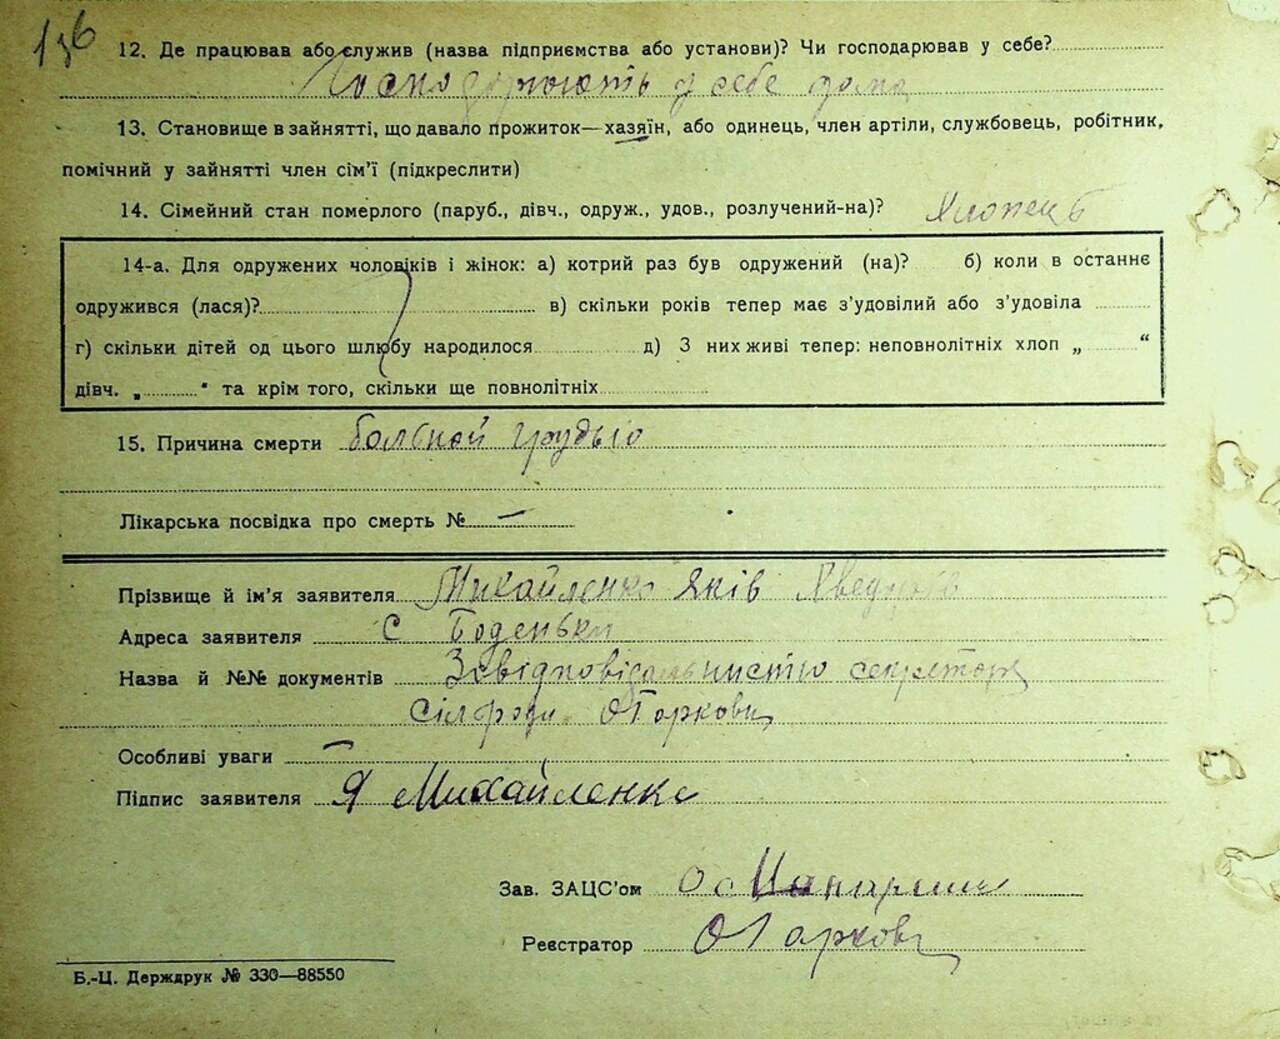 136
12. Де працював або служив (назва підприємства або установи)? Чи господарював у себе?
Господарюють у себе дома
13. Становище в зайнятті, що давало прожиток—хазяїн, або одинець, член артіли, службовець, робітник,
помічний у зайнятті член сім'ї (підкреслити)
14. Сімейний стан померлого (паруб., дівч., одруж., удов., розлучений-на)? Хлопець
14-а. Для одружених чоловіків і жінок: а) котрий раз був одружений (на)? б) коли в останнє
одружився (лася)? в) скільки років тепер має з'удовілий або з'удовіла
г) скільки дітей од цього шлюбу народилося д) З них живі тепер: неповнолітніх хлоп „ “
дівч. „ “ та крім того, скільки ще повнолітніх
15. Причина смерти болъной грудью
Лікарська посвідка про смерть № —
Прізвище й ім'я заявителя Михайленко Яків
Адреса заявителя с Боденьки
Назва й №№ документів За відповідальністю секретаря
Сілради
Особливі уваги —
Підпис заявителя Я Михайленко
Зав. ЗАЦС'ом
Реєстратор
Б.-Ц. Держдрук № 330—88550